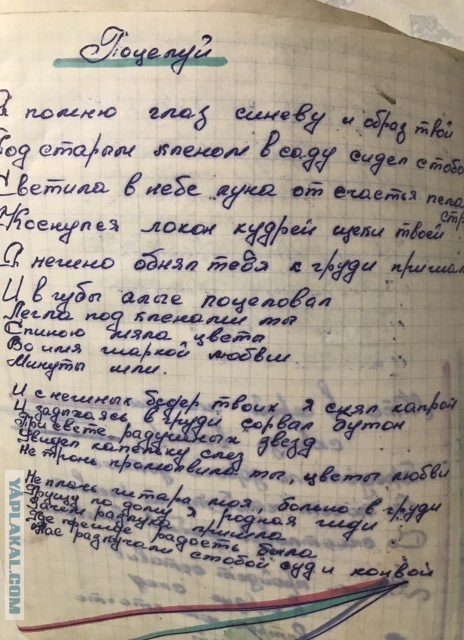 Поцелуй
Я помню глаз синеву и образ твой
Под старым кленом в саду сидел стобо
Светила в небе луна от счастья пела
стр
Коснулся локон кудрей щеки твоей
Я нежно обнял тебя к груди прижал
И в губы алые поцеловал
Легла под кленами ты
Спиною мяла цветы
Во имя жаркой любви.
Минуты шли.
И с нежных бедер твоих я снял капрон
И задыхаясь в груди сорвал бутон
При свете радужных звезд
Увидел капельку слез
Не тронь промолвила ты, цветы любви
Не плачь гитара моя, больно в груди
Грущу по дому я родная жди
Зачем разлука пришла
Где прежде радость была
Нас разлучали стобой суд и конвой
YAPLAKAL.COM